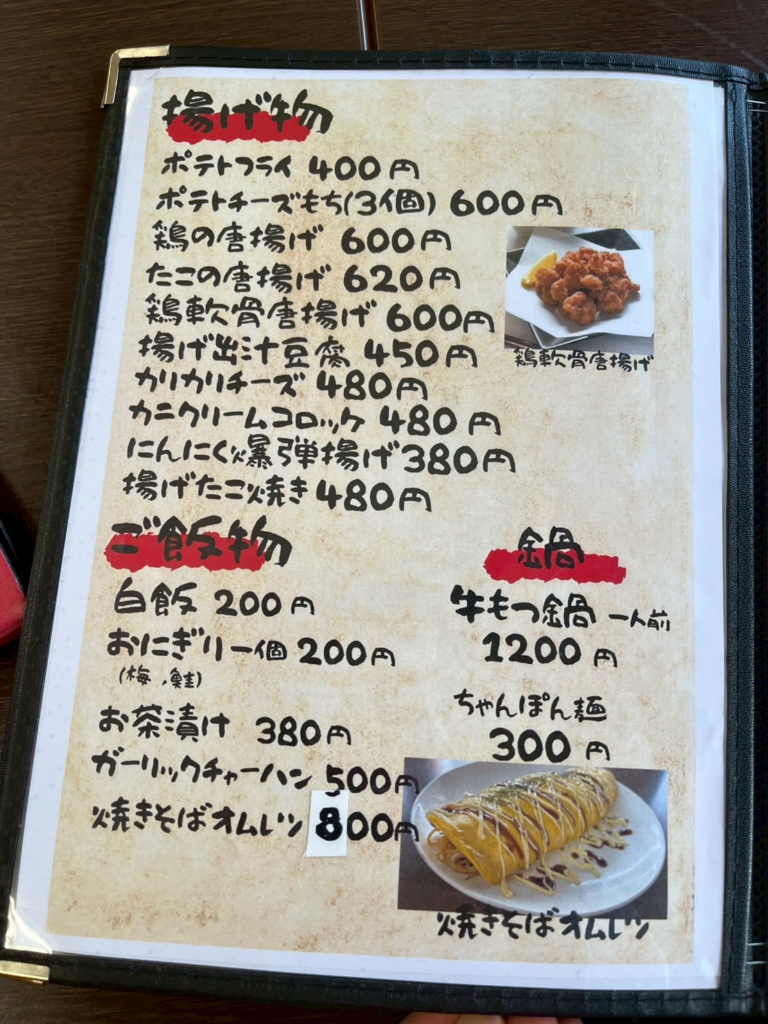 揚げ物
ポテトフライ 400円
ポテトチーズもち(3個) 600円
鶏の唐揚げ 600円
たこの唐揚げ 620円
鶏軟骨唐揚げ 600円
鶏軟骨唐揚げ
揚げ出汁豆腐 450円
カリカリチーズ 480円
カニクリームコロッケ 480円
にんにく爆弾揚げ 380円
揚げたこ焼き 480円
ご飯物
白飯 200円
おにぎり一個 200円
(梅、鮭)
お茶漬け 380円
ガーリックチャーハン 500円
焼きそばオムレツ 800円
鍋
牛もつ鍋 一人前
1200円
ちゃんぽん麺
300円
焼きそばオムレツ